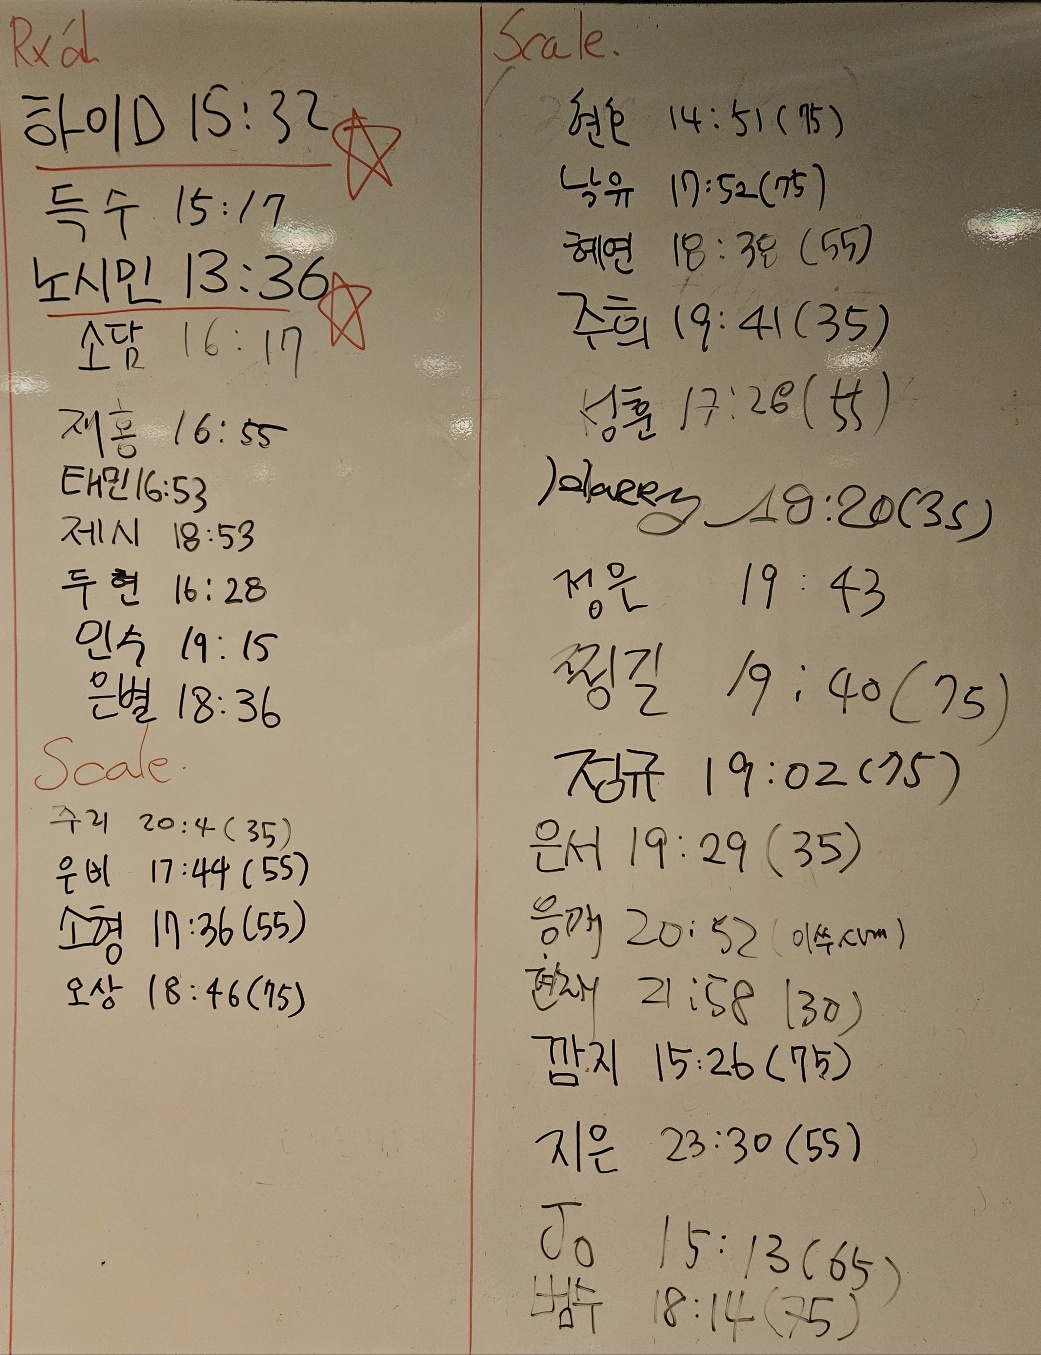 Rx'd
하이D 15:32
득수 15:17
노시민 13:36
소담 16:17
재홍 16:55
태민 16:53
제시 18:53
두현 16:28
인수 19:15
은별 18:36
Scale.
주리 20:4(35)
은비 17:44(55)
소형 17:36(55)
오상 18:46(75)
Scale.
14:51(75)
낙유 17:52(75)
혜연 18:38(55)
주희 19:41(35)
성훈 17:28(55)
19:20(35)
정은 19:43
찡길 19:40(75)
정규 19:02(75)
은서 19:29(35)
20:52
현재 21:58(30)
깜지 15:26(75)
지은 23:30(55)
Jo 15:13(65)
범수 18:14(75)